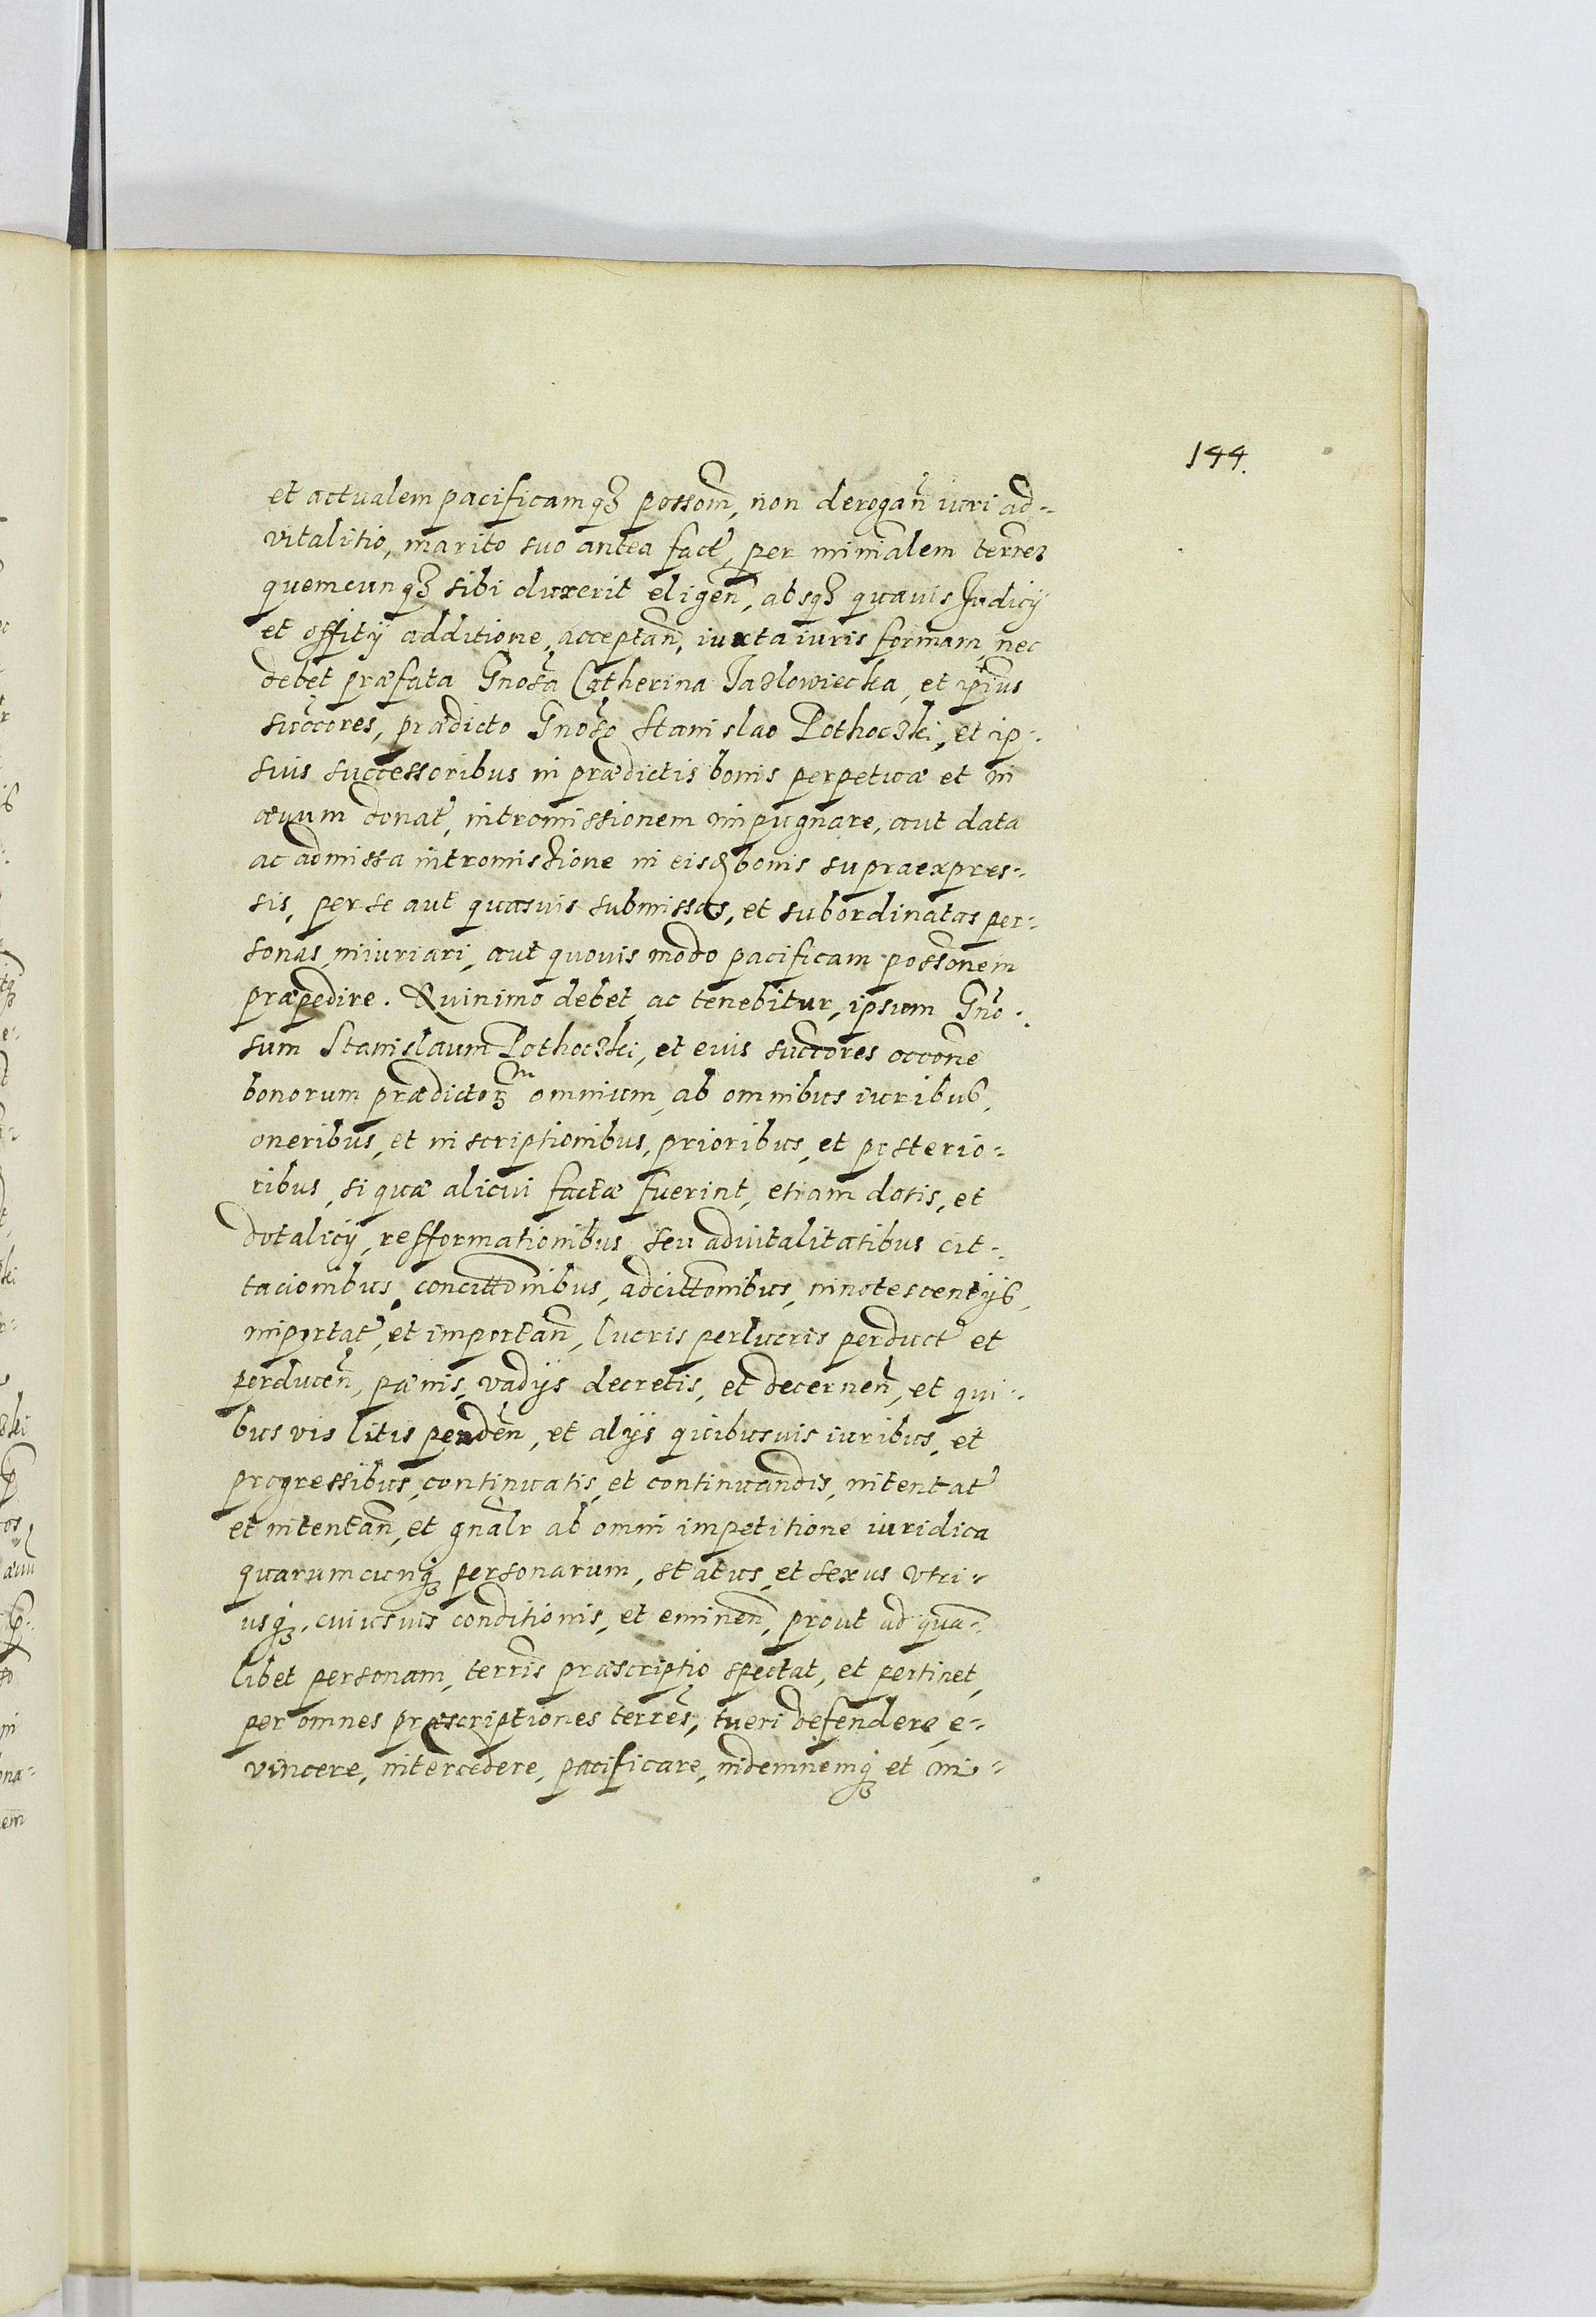 144.
et actualem pacificamqꝫ possom̃, non derogañ iuri ad-
vitalitio, marito suo antea fact̃, per minĩalem terreẽ
quemcunqꝫ sibi duxerit eligeñ, absqꝫ quauis Judicij
et offitij additione, acceptañ, iuxta iuris formam, nec
debet præfata Gnosã Catherina Jazlowiecka, et ipius
succores, prædicto Gnoso Stanislao Pothoczki, et ip-
suis successoribus in prædictis bonis perpetuæ et in
æuum donat̃, intromissionem impugnare, aut data
ac admissa intromissione in eisd bonis supraexpres-
sis, per se aut quasuis submissas, et subordinatas per-
sonas, iniuriari, aut quouis modo pacificam possonem
præpedire. Quinimo debet, ac tenebitur, ipsum Gno-
sum Stanislaum Pothoczki, et eius succores occone
bonorum prædictoꝝ omnium, ab omnibus iuribus,
oneribus, et inscriptionibus, prioribus, et posterio-
ribus, si quæ alicui factæ fuerint, etiam dotis, et
dotalicij, refformationibus, seu aduitalitatibus cit-
tacionibus, concittonibus, adcittonibus, innotescentijs,
importat̃, et importañ, lucris perlucris perduct̃ et
perduceñ, pænis, vadijs decretis, et decerneñ, et qui-
busvis litis pendeñ, et alijs quibusuis iuribus, et
progressibus, continuatis, et continuandis, intentat̃
et intentañ, et gnalr ab omni impetitione iuridica
quarumcunqꝫ personarum, status, et sexus vtri-
usqꝫ, cuiusuis conditionis, et emineñ, prout ad quã-
libet personam, terris præscriptio spectat, et pertinet,
per omnes præscriptiones terres, tueri defendere, e-
vincere, intercedere, pacificare, indemnemqꝫ et in-